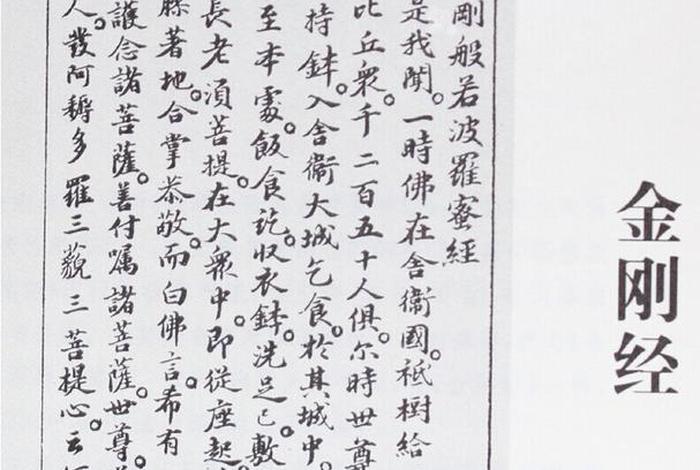 金刚经
剛般若波羅蜜經
是我聞。一時佛在舍衞國。祇樹給
比丘衆。千二百五十人俱。尔時世尊
持鉢。入舍衞大城乞食。於其城中。
至本處。飯食訖。収衣鉢。洗足已。敷
長老須菩提。在大衆中。即從座起
膝著地。合掌恭敬。而白佛言。希有
護念諸菩薩。善付嘱諸菩薩。世尊。
人。發阿耨多羅三藐三菩提心。云